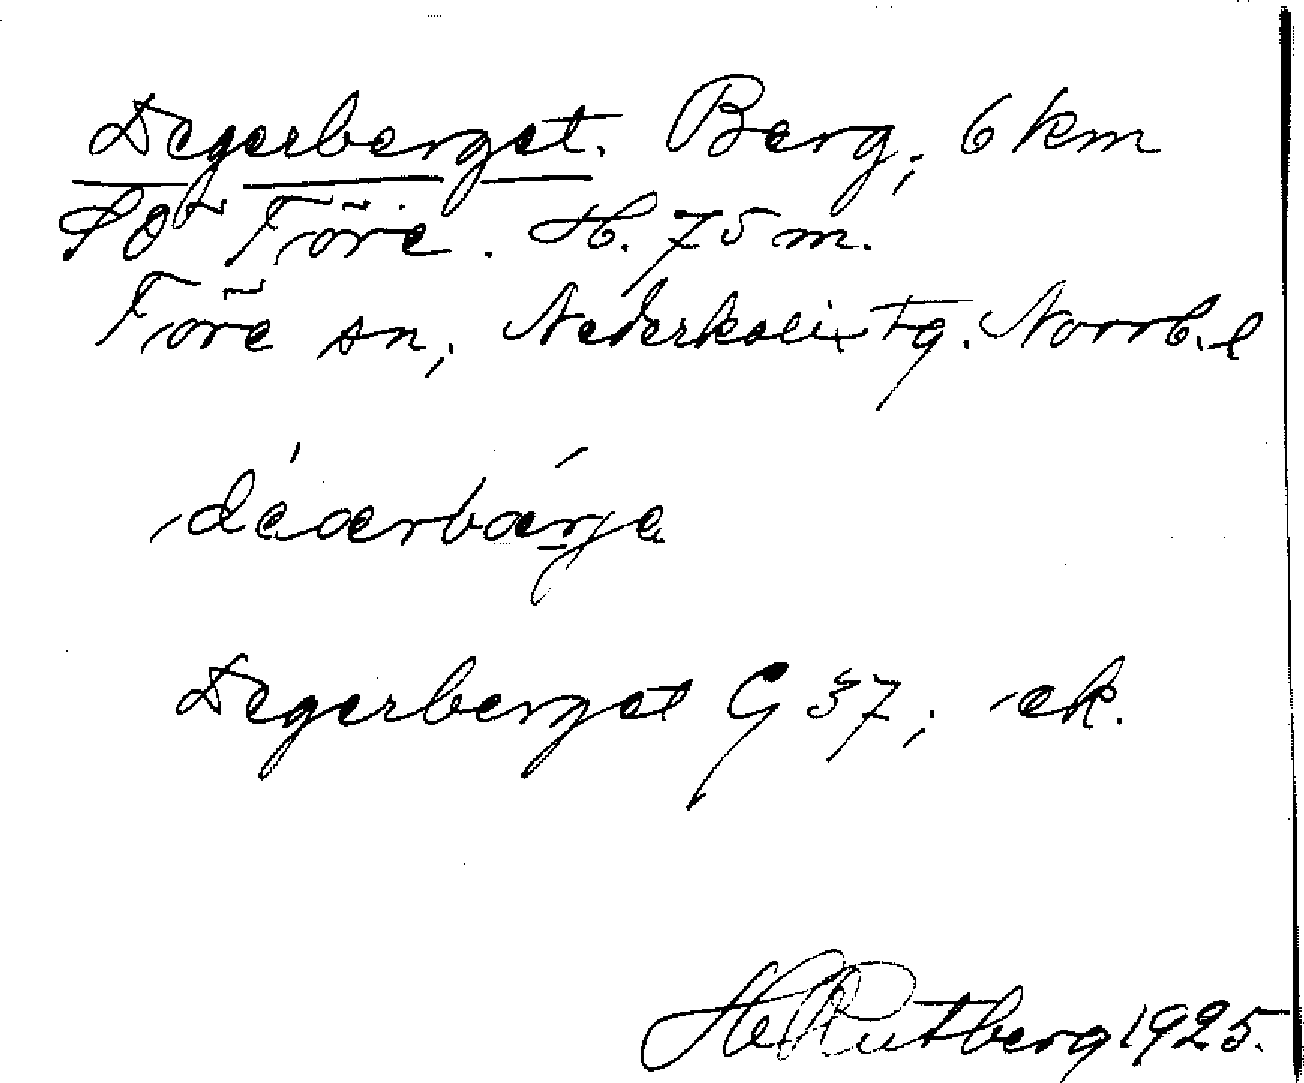 Degerberget. Berg, 6 km
SO Töre. H. 75 m.
Töre sn, Nederkalix tg. Norrb. l
Degerberget G 37, ek.
H Rutberg 1925.